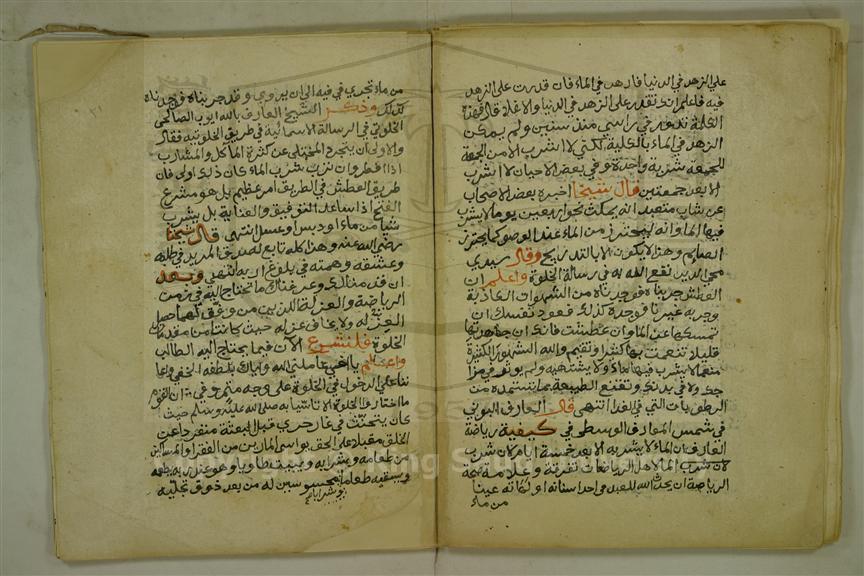 على الزهد في الدنيا فازهد في الماء فان قدرت على الزهد
فيه فاعلم انك تقدر على الزهد في الدنيا والا فلا قال فهذه
الكلمة تدور في راسي منذ سنين ولم يمكن
الزهد في الماء بالكلية لكني لا اشرب الا من الجمعة
للجمعة شربة واحدة وفي بعض الاحيان لا اشرب
الا بعد جمعتين قال شيخنا اخبره بعض الاصحاب
عن شاب متعبد انه يمكث نحو اربعين يوما لا يشرب
فيها الماء وانه ليحترز من الماء عند الوضو كما يحترز
الصايم وهذا لا يكون الا بالتدريج وقال سيدي
محي الدين نفع الله به في رسالة الخلوة واعلم ان
العطش جربناه فوجدناه من الشهوات الكاذبة
وجربه غيرنا فوجده كذلك فعود نفسك ان
تمسكها عن الماء وان عطشت فانك ان جاهدتها
قليلا تنعمت بها كثيرا وتقيم والله الشهور الكثيرة
منها لا يشرب فيها الماء ولا يشتهيه ولم يؤثر في مزا
جك ولا في بدنك وتقنع الطبيعة بما تستمده من
الرطوبات التي في الغذا انتهى قال العارف البوني
في شمس المعارف الوسطى في كيفية رياضة
العارف ان الماء لا يشربه الا بعد خمسة ايام لان شرب
لان شرب الماء لاهل الرياضات تفرقة وعلامة صحة
الرياضة ان يحدث الله للعبد في احد اسنانه او لهاته عينا
من ماء
من ماء تجري في فيه الى ان يروى وقد جربناه فوجدناه
كذلك وذكر الشيخ العارف بالله ايوب الصالحي
الخلوتي في الرسالة الاسمائية في طريق الخلوتية فقال
والاولى ان يتجرد المختلي عن كثرة الماكل والمشارب
اذا افطر وان ترك شرب الماء كان ذلك اولى فان
طريق العطش في الطريق امر عظيم بل هو مشرع
الفتح اذا ساعد التوفيق والعناية بل يشرب
شيا من ماء او دبس او عسل انتهى قال شيخنا
رضي الله عنه وهذا كله تابع لصدق المريد في طلبه
وعشقه وهمته في بلوغ اربه انتهى وبعد
ان قدمنا لك وعرفناك ما تحتاج اليه في زمن
الرياضة والعزلة اللذين من وفق لهما حصل
العزلة ولا يخاف عزله حيث كانتا من مقدمات
الخلوة فلنشرع الان فيما يحتاج اليه الطالب
واعلم يا اخي عاملني الله واياك بلطفه الخفي واعا
ننا على الدخول في الخلوة على وجه مشروع في ان القوم
ما اختاروا الخلوة الا تاسيا به صلى الله عليه وسلم حيث
كان يتحنث في غار حرى قبل البعثة منفردا عن
الخلق مقبلا على الحق يواسي المارين من الفقرا والمساكين
من طعامه وشرابه ويبيت طاويا وهو عند ربه يطعمه
ويسقيه طعاما وشرابا غير محسوسين له من بعد ذوق تجليه